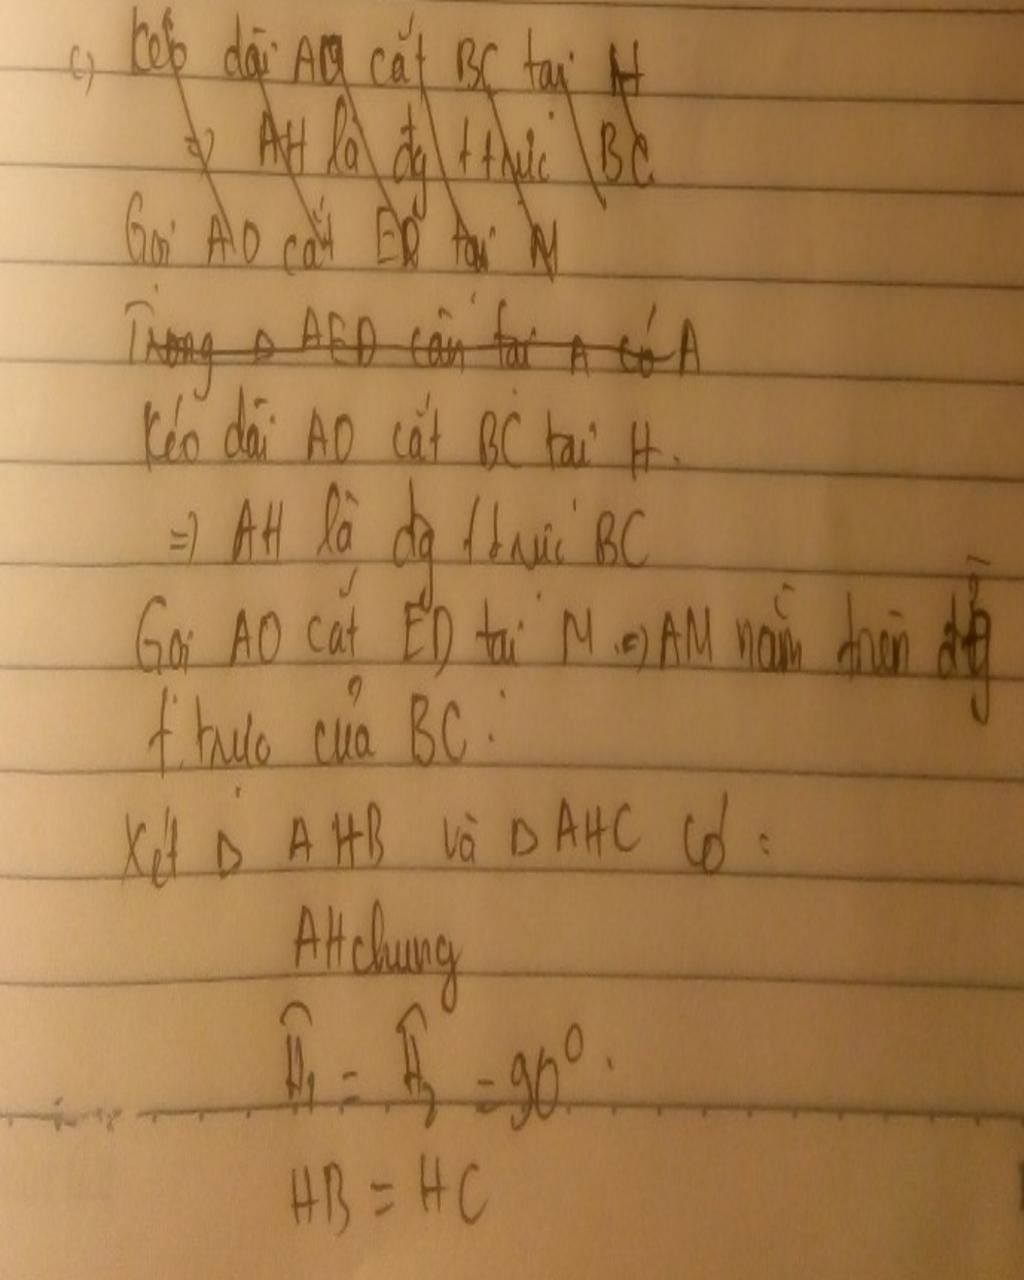 c) kéo dài AO cắt BC tại H
=> AH là đg t trực BC
Gọi AO cắt ED tại M
Trong Δ AED cân tại A có A
Kéo dài AO cắt BC tại H.
=> AH là đg t trực BC
Gọi AO cắt ED tại M => AM nằm trên đg
t. trực của BC.
Xét Δ AHB và Δ AHC có :
AH chung
Ĥ1 = Ĥ2 = 90°.
HB = HC